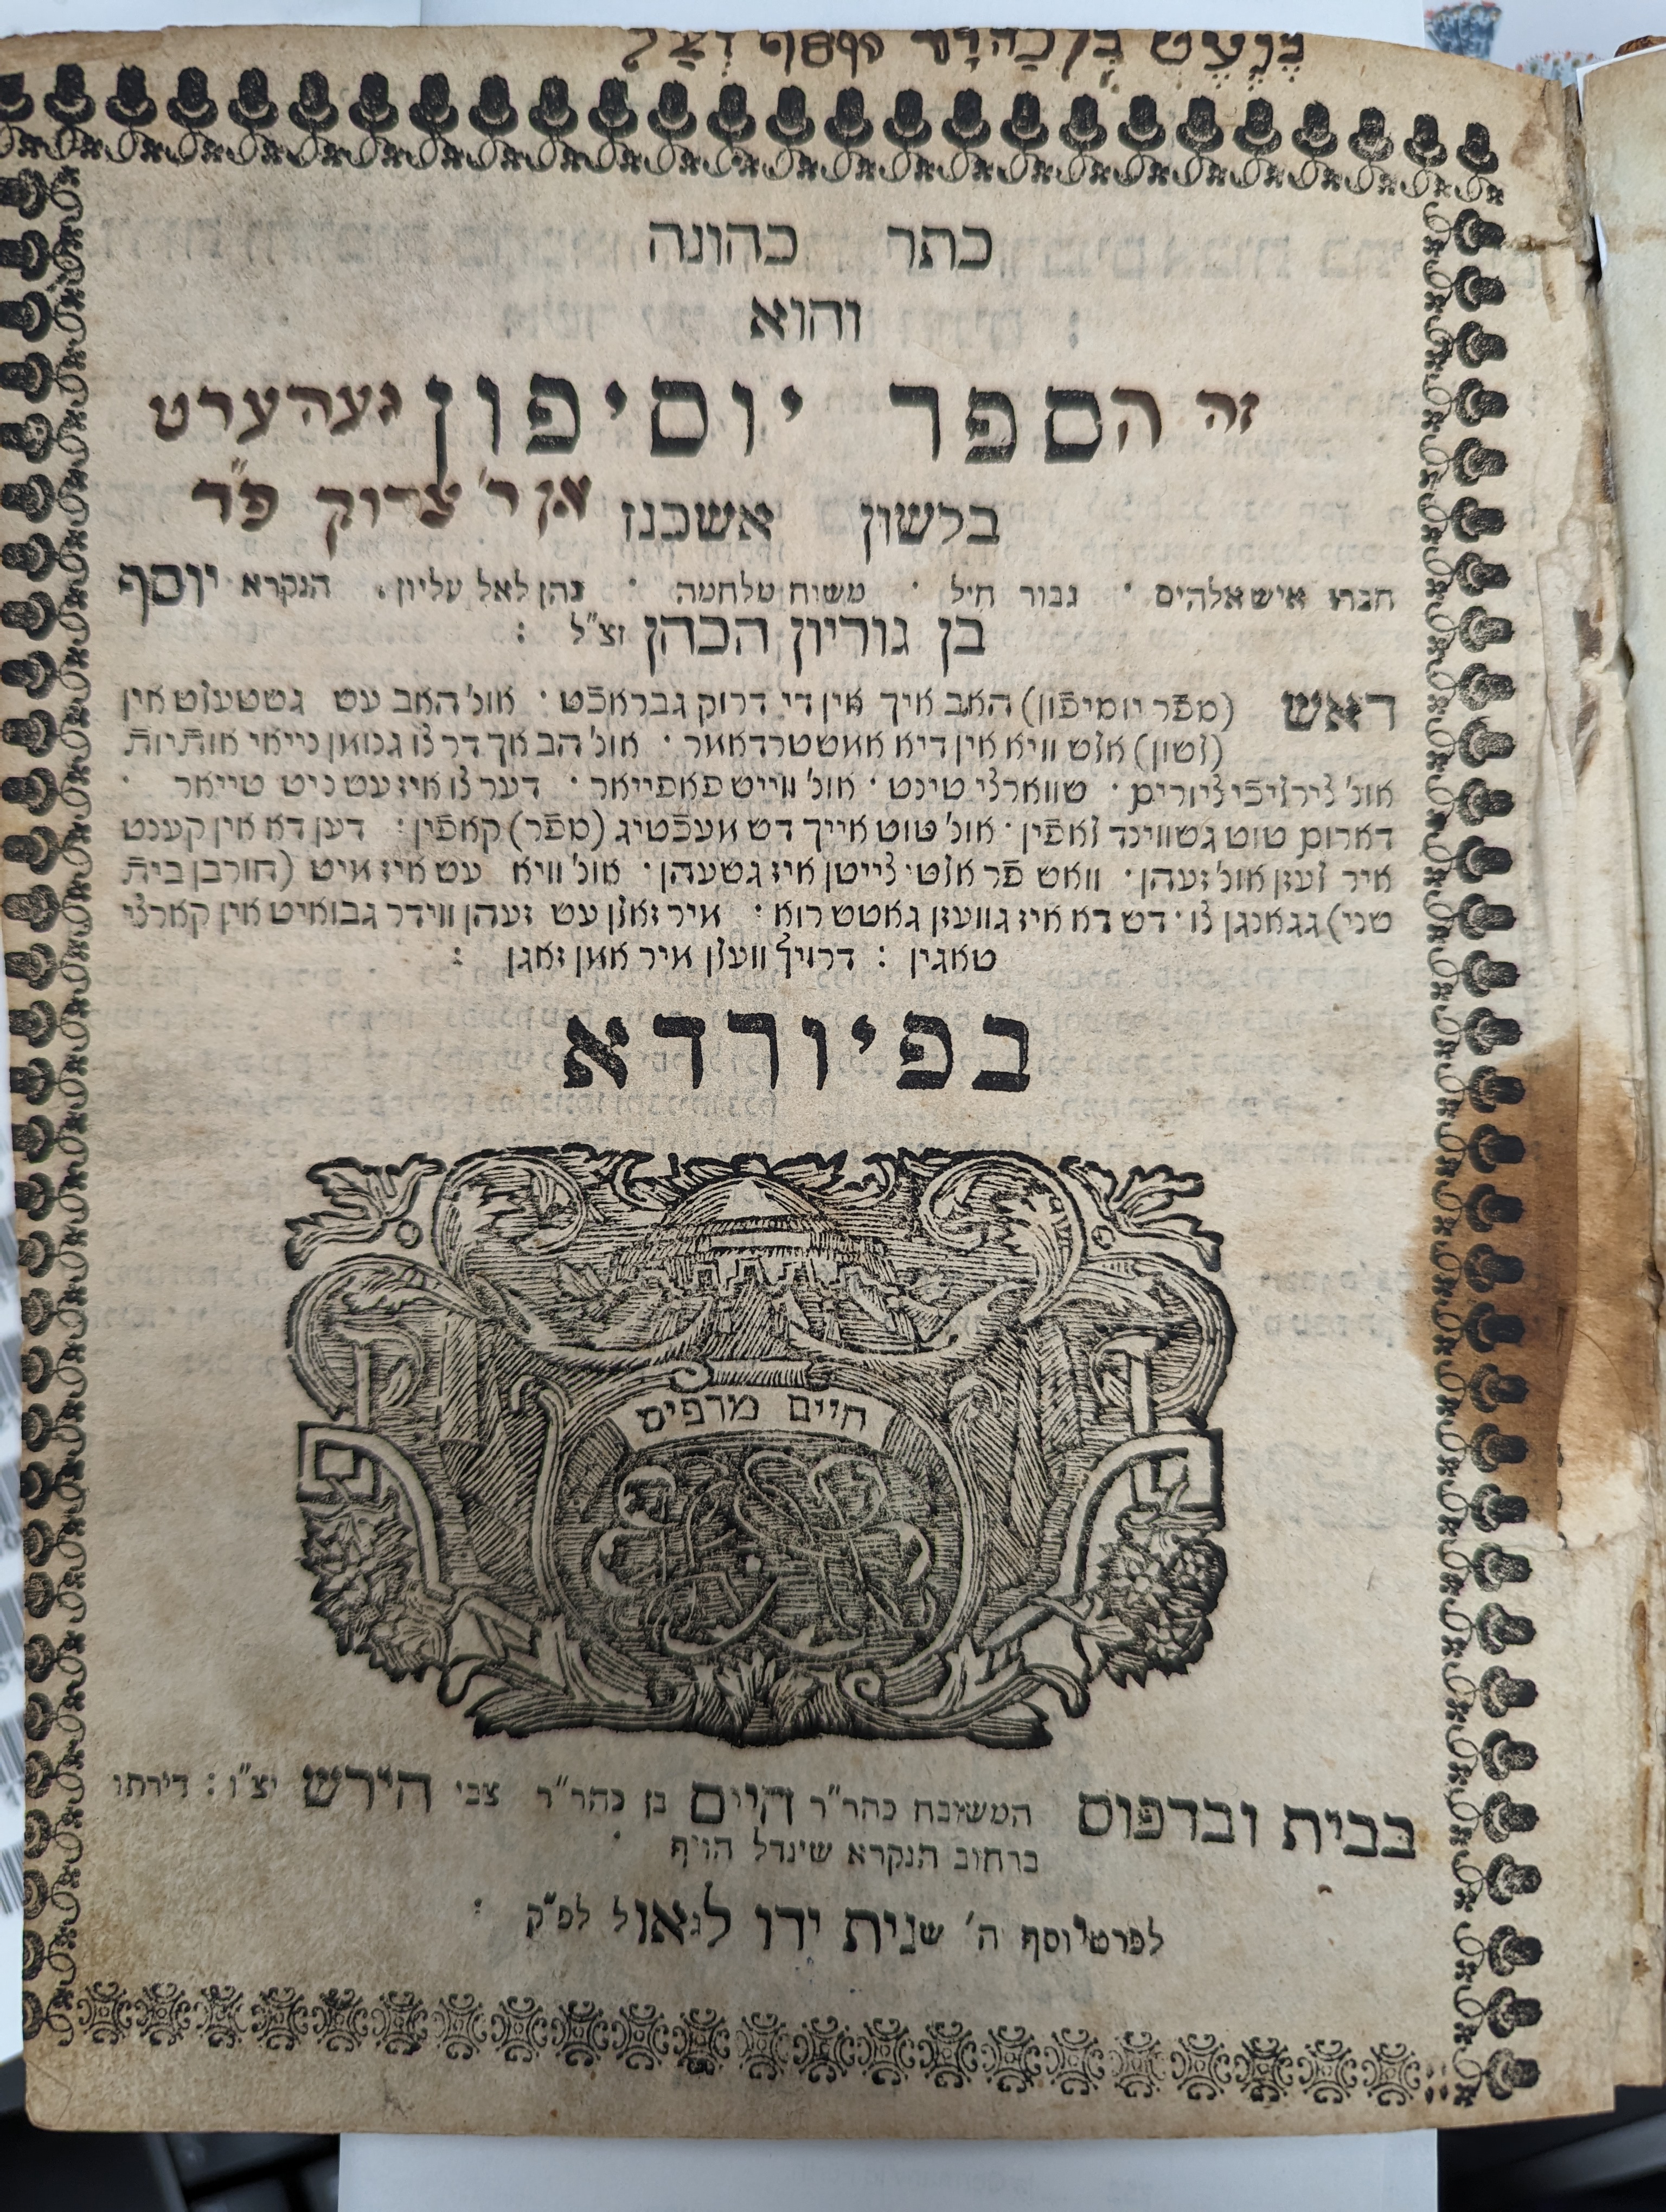 כתר כהונה
והוא
זה הספר יוסיפון געהערט
בלשון אשכנז אן ר' פ"ד
חברו איש אלהים · גבור חיל · משוח מלחמה · כהן לאל עליון · הנקרא יוסף
בן גוריון הכהן זצ"ל :
דאש (ספר יוסיפון) האב איך אין די דרוק גבראכט · אונ' האב עט גשטעלט אין
(לשון) אלט וויא אין דיא אמשטרדאמר · אונ' הב אך דר צו גנומן נייאי אותיות
אונ' צירליכי ציורים · שווארצי טינט · אונ' ווייט פאפייאר · דער צו איז עט ניט טייאר
דארום טוט גשווינד לאפין · אונ' טוט אייך דש מעכטיג (ספר) קאפין : דען דא אין קענט
איר לעזן אונ' זעהן · וואש פר אלטי צייטן איז גשעהן · אונ' וויא עט איז מיט (חורבן בית
שני) גגאנגן צו · דש דא איז גוועזן גאטט רוא · מיר זאלן עט זעהן ווידר גבואיט אין קארצי
טאגין : דרויף וועלן מיר אמן זאגן :
בפיורדא
חיים מרפיס
בבית ובדפוס המשובח כהר"ר חיים בן כהר"ר צבי הירש יצ"ו : דירתו
ברחוב הנקרא שינדל הויף
לפרט יוסף ה' שנית ידו לגאול לפ"ק :